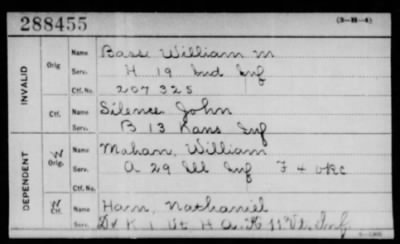 288455 (3-H-4)
INVALID
Orig Name Bass William M
Serv. H 19 Ind Inf
Ctf. No. 207325
Ctf. Name Silence John
Serv. B 13 Kans Inf
DEPENDENT
W Orig. Name Mahan, William
Serv. A 29 Ill Inf
Ctf. No.
W Ctf. Name Ham, Nathaniel
Serv. K 1 Vt H A 11 Vt. Inf